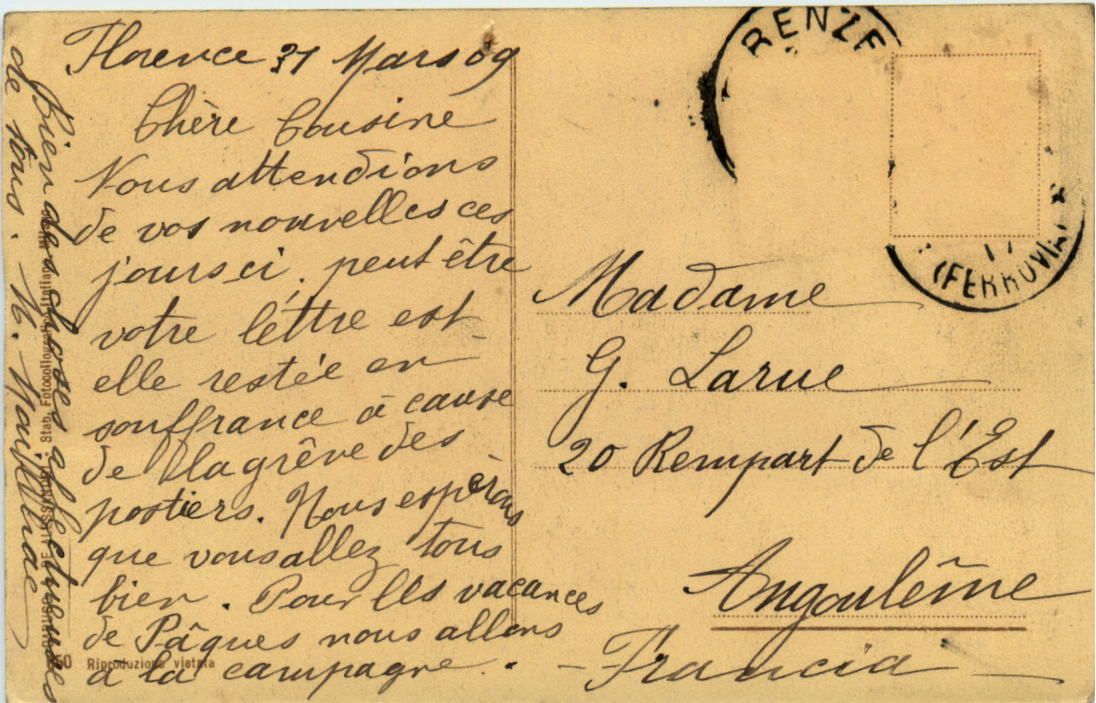 Florence 31 Mars 09
Chère Cousine
Nous attendions
de vos nouvelles ces
jours ci, peut être
votre lettre est
elle restée en
souffrance à cause
de la grève des
postiers. Nous espérons
que vous allez tous
bien. Pour les vacances
de Pâques nous allons
à la campagne.
Bien des choses affectueuses
de tous. M.
RENZE
17
(FERROVIA)
Madame
G. Larue
20 Rempart de l'Est
Angoulême
Francia
Stab.
Riproduzione vietata